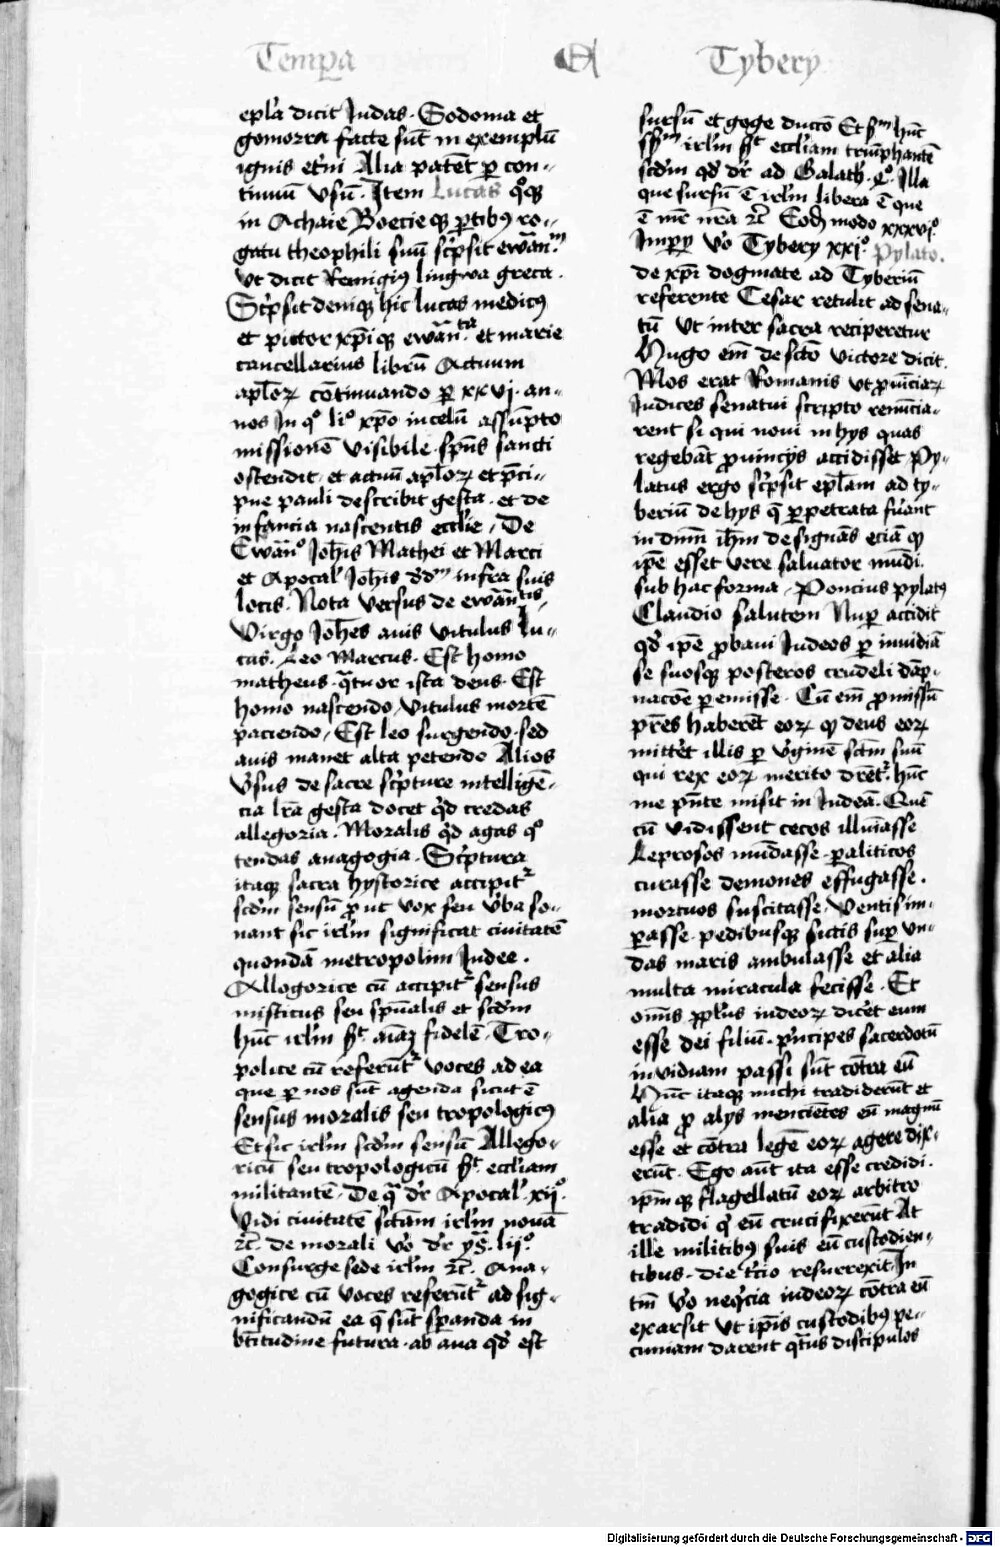 Tempa
Tybery
ep̄la dicit Judas. Sodoma et
gomorra facte sūt in exemplū
ignis et̄ni Alia patēt ꝑ con-
tinuū vsū. Item Lucas qͦqꝫ
in Achaie Boecie qꝫ ꝑtibꝰ ro-
gatu theophili suū sc̄psit ewāᵐ
vt dicit Remigiꝰ lingwa greca.
Sc̄psit deniqꝫ hic lucas medicꝰ
et pictor xp̄i qꝫ ewānᵗᵃ et marie
cancellarius librū Actuum
apl̄oꝝ cōtinuando ꝑ xxvj. an-
nos In qͦ liͦ xp̄o in celū assūpto
missionē visibilē sp̄us sancti
ostendit. et actuū apl̄oꝝ et p̄ci-
pue pauli describit gesta. et de
infancia nascentis eccl̄ie, De
Ewānͦ Joh̄is Mathei et Marci
et Apocal̄ Joh̄is infra suis
locis. Nota versus de ewānᵗⁱˢ.
Virgo Joh̄es auis vitulus lu-
cas. Leo Marcus. Est homo
matheus. q̄tuor ista deus. Est
homo nascendo, vitulus mortē
paciendo, Est leo surgendo. sed
auis manet alta petendo Alios
v̄sus de sacre sc̄pture intelligē-
cia lr̄a gesta docet qd̄ credas
allegoria. Moralis qd̄ agas qͦ
tendas anagogia. Sc̄ptura
itaqꝫ sacra hystorice accipitᷣ
scdm̄ sensū ꝓut vox seu v̄ba so-
nant sic irl̄m significat ciuitatē
quondā metropolim Judee.
Allogorice cū accipitᷣ sensus
misticus seu sp̄ualis et scdm̄
hūc irl̄m sꝫ aīaꝫ fidelē. Tro-
poloice cū referūtᷣ voces ad ea
que ꝑ nos sūt agenda sicut ē
sensus moralis seu tropologicꝰ
Et sic irl̄m scdm̄ sensū Allego-
ricū seu tropologicū sꝫ eccl̄iam
militantē. De qͣ dr̄ Apocal̄. xijͦ.
Vidi ciuitatē sctām irl̄m nouā
ꝛc̄. de morali v̊o dr̄ ys̄. lijͦ.
Consurge sede irl̄m ꝛc̄. Ana-
gogice cū voces referūtᷣ ad sig-
nificandū ea q̄ sūt sꝑanda in
bt̄itudine futura. ab ana qd̄ est
sursū et goge ductō Et sᵐ hūc
irl̄m sꝫ eccl̄iam triūphantē
scdm̄ qd̄ dr̄ ad Galath. Illa
que sursū ē irl̄m libera ē que
ē mr̄ nr̄a ꝛc̄ Eodē modo xxxvjͦ.
Impery v̊o Tybery xxjͦ. Pylato.
de xp̄i dogmate ad Tyberiū
referente Cesar retulit ad sena-
tū vt inter sacra reciperetur
Hugo em̄ de sctō victore dicit.
Mos erat Romanis vt ꝓuīciaꝝ
Judices senatui scripto renūcia-
rent si qui noui in hys quas
regebāt ꝓuincijs accidisset Py-
latus ergo sc̄psit ep̄lam ad ty-
beriū de hys q̄ ꝑpetrata fuerant
in dnm̄ ih̄m designās eciā qꝫ
ip̄e esset vere saluator mūdi.
sub hac forma. Poncius pylatꝰ
Claudio salutem Nuꝑ accidit
qd̄ ip̄e ꝓbaui Judeos ꝑ inuidiā
se suosqꝫ posteros crudeli dāp-
nacōe ꝑemisse. Cū em̄ ꝓmissū
pr̄es haberēt eoꝝ qꝫ deus eoꝝ
mittēt illis ꝑ v̄ginē sctm̄ suū
qui rex eoꝝ merito dr̄etᷣ. hūc
me pn̄te misit in Judeā. Quē
cū vidissent cecos illuīasse
Leprosos mūdasse. ꝑaliticos
curasse demones effugasse.
mortuos suscitasse. Ventis im-
ꝑasse. pedibusqꝫ siccis suꝑ vn-
das maris ambulasse et alia
multa miracula fecisse. Et
omīs ppl̄us iudeoꝝ dic̄et eum
esse dei filiū. p̄ncipes sacerdotū
inuidiam passi sūt cōtra eū
Hūc itaqꝫ michi tradiderūt et
alia ꝓ alys mencietes eū magnū
esse et cōtra legē eoꝝ agere dix-
erūt. Ego aūt ita esse credidi.
ip̄m qꝫ flagellatū eoꝝ arbitro
tradidi q̇ eū crucifixerūt At
ille militibꝰ suis eū custodien-
tibus. die tc̄io resurrexit. In
tm̄ v̊o neq̇cia iudeoꝝ cōtra eū
exarsit vt ip̄is custodibꝰ pe-
cuniam darent qͣtus discipulos
Digitalisierung gefördert durch die Deutsche Forschungsgemeinschaft - DFG